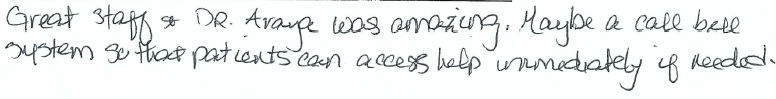 Great staff & DR. Araya was amazing. Maybe a call bell
system so that patients can access help immediately if needed.